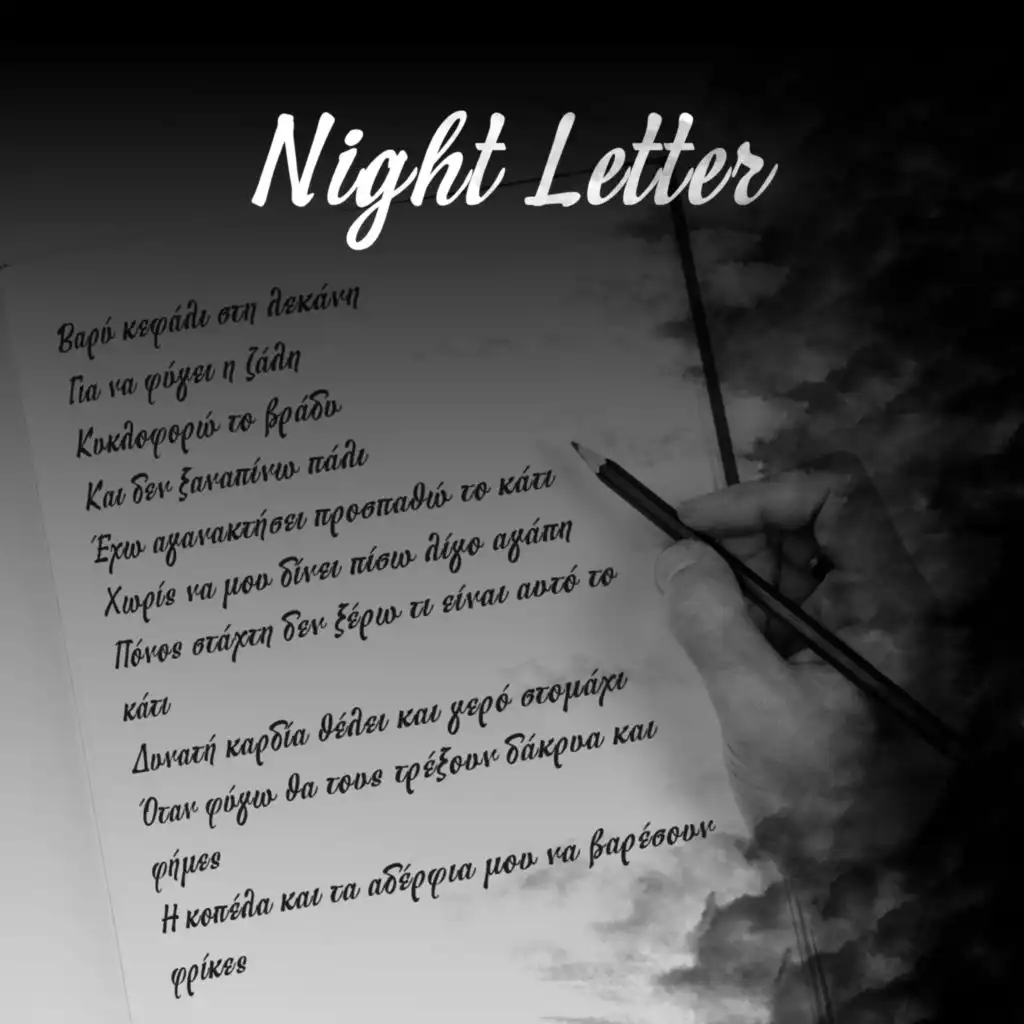 Night Letter
Βαρύ κεφάλι στη λεκάνη
Για να φύγει η ζάλη
Κυκλοφορώ το βράδυ
Και δεν ξαναπίνω πάλι
Έχω αγανακτήσει προσπαθώ το κάτι
Χωρίς να μου δίνει πίσω λίγο αγάπη
Πόνος στάχτη δεν ξέρω τι είναι αυτό το
κάτι
Δυνατή καρδία θέλει και γερό στομάχι
Όταν φύγω θα τους τρέξουν δάκρυα και
φήμες
Η κοπέλα και τα αδέρφια μου να βαρέσουν
φρίκες